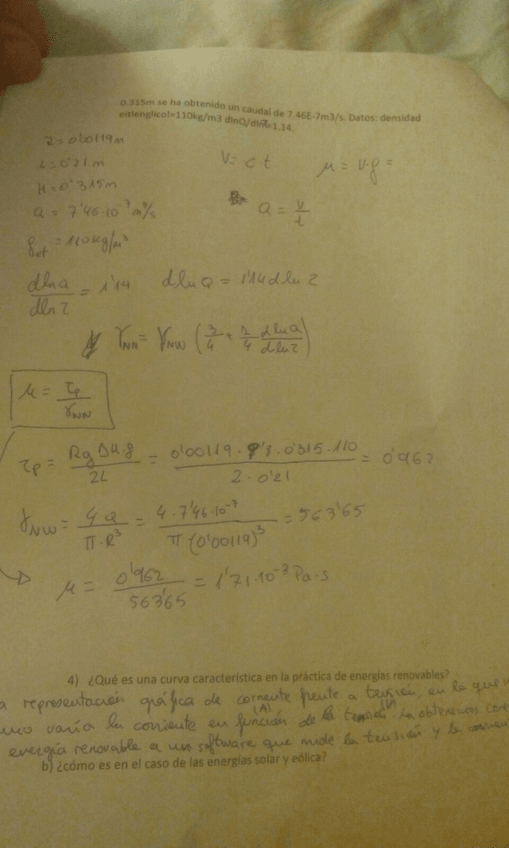 0.315m se ha obtenido un caudal de 7.46E-7m3/s. Datos: densidad
etilenglicol=110kg/m3 dlnQ/dlnτ=1.14.
R = 0'00119 m
L = 0'21 m
H = 0'315 m
Q = 7'46·10⁻⁷ m³/s
ρet = 110 kg/m³
V = c t
μ = ν·ρ =
Q = V/t
dlnQ/dlnτ = 1'14 dlnQ = 1'14 dlnτ
γNN = γNW (3/4 + 1/4 dlnQ/dlnτ)
μ = τp/γNN
τp = R g ΔH·ρ / 2L = 0'00119 · 9'8 · 0'315 · 110 / 2 · 0'21 = 0'962
γNW = 4Q / π·R³ = 4 · 7'46·10⁻⁷ / π (0'00119)³ = 563'65
μ = 0'962 / 563'65 = 1'71·10⁻³ Pa·s
4) ¿Qué es una curva característica en la práctica de energías renovables?
a representación gráfica de corriente frente a tensión, en la que
mo varía la corriente en función de la tensión. La obtenemos
energía renovable a un software que mide la tensión y la corriente
(A) (V)
b) ¿cómo es en el caso de las energías solar y eólica?